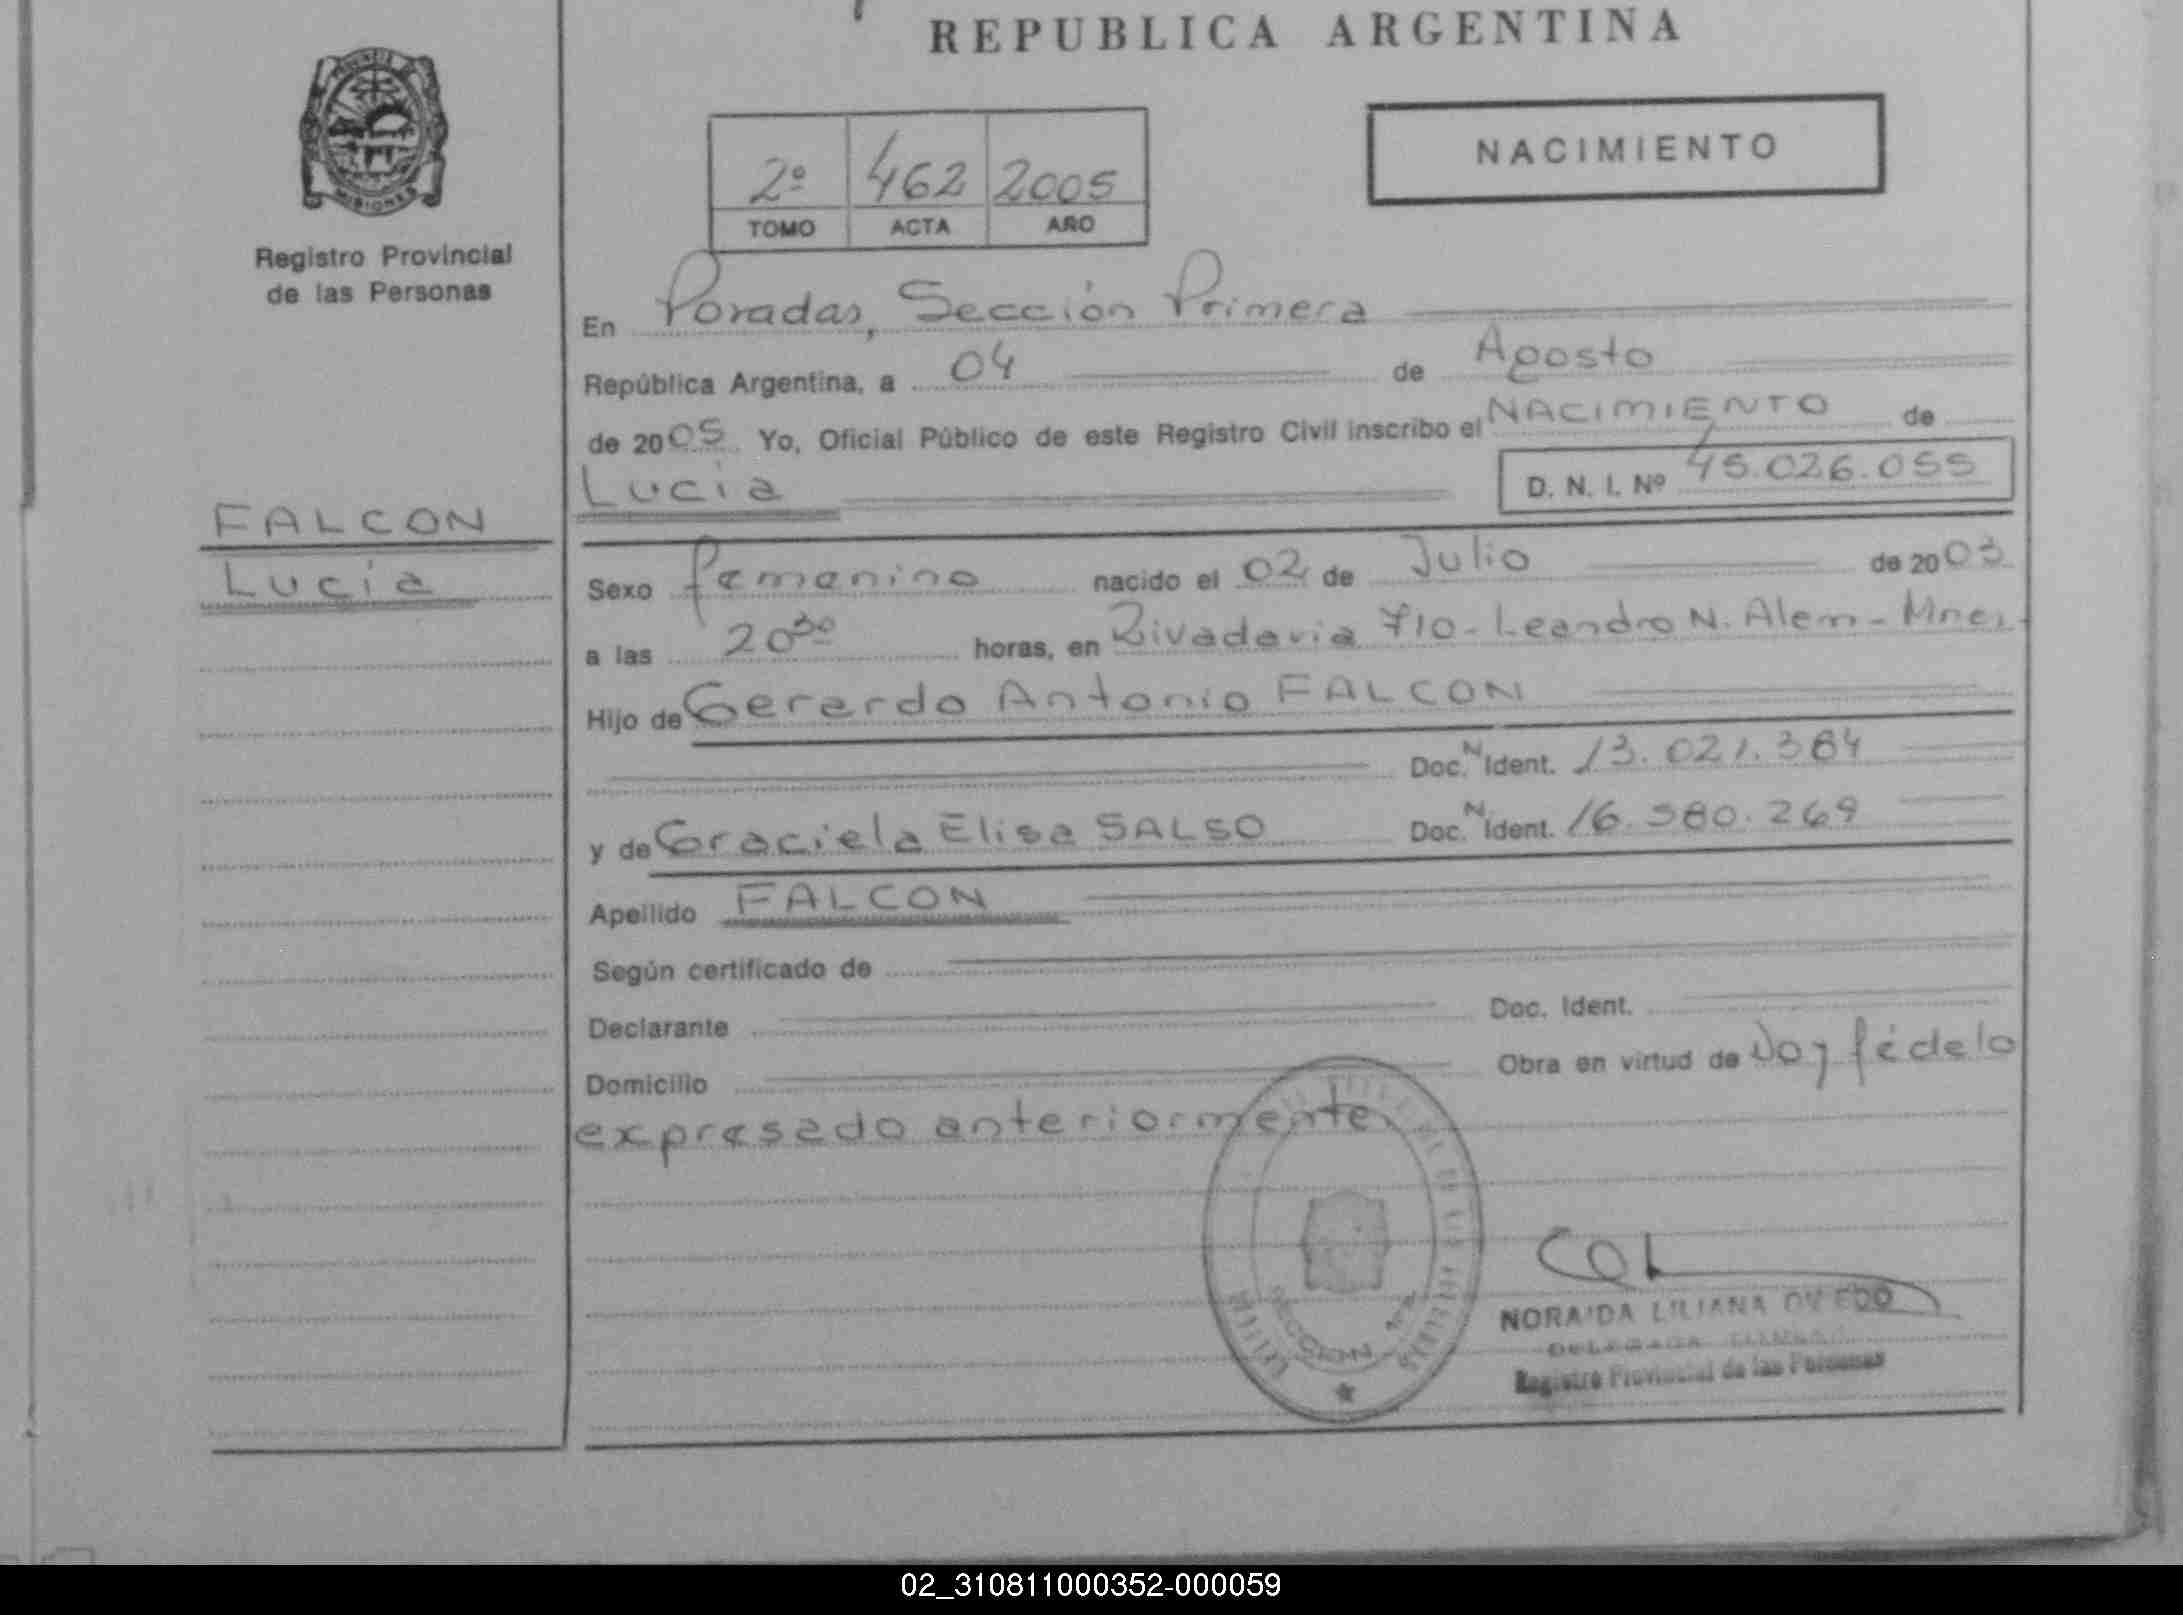 REPUBLICA ARGENTINA
PROVINCIA DE
MISIONES
Registro Provincial
de las Personas
2º 462 2005
TOMO ACTA AÑO
NACIMIENTO
En Posadas, Sección Primera
República Argentina, a 04 de Agosto
de 2005 Yo, Oficial Público de este Registro Civil inscribo el NACIMIENTO de
Lucia D. N. I. Nº 45.026.055
FALCON
Lucía
Sexo femenino nacido el 02 de Julio de 2003
a las 20³⁰ horas, en Rivadavia 710 - Leandro N. Alem - Mnes.
Hijo de Gerardo Antonio FALCON
Doc. N Ident. 13.021.364
y de Graciela Elisa SALSO Doc. N Ident. 16.580.269
Apellido FALCON
Según certificado de
Declarante Doc. Ident.
Domicilio Obra en virtud de Doy fé de lo
expresado anteriormente
SECCION 1ra
NORAIDA LILIANA OVIEDO
DELEGADA
Registro Provincial de las Personas
02_310811000352-000059